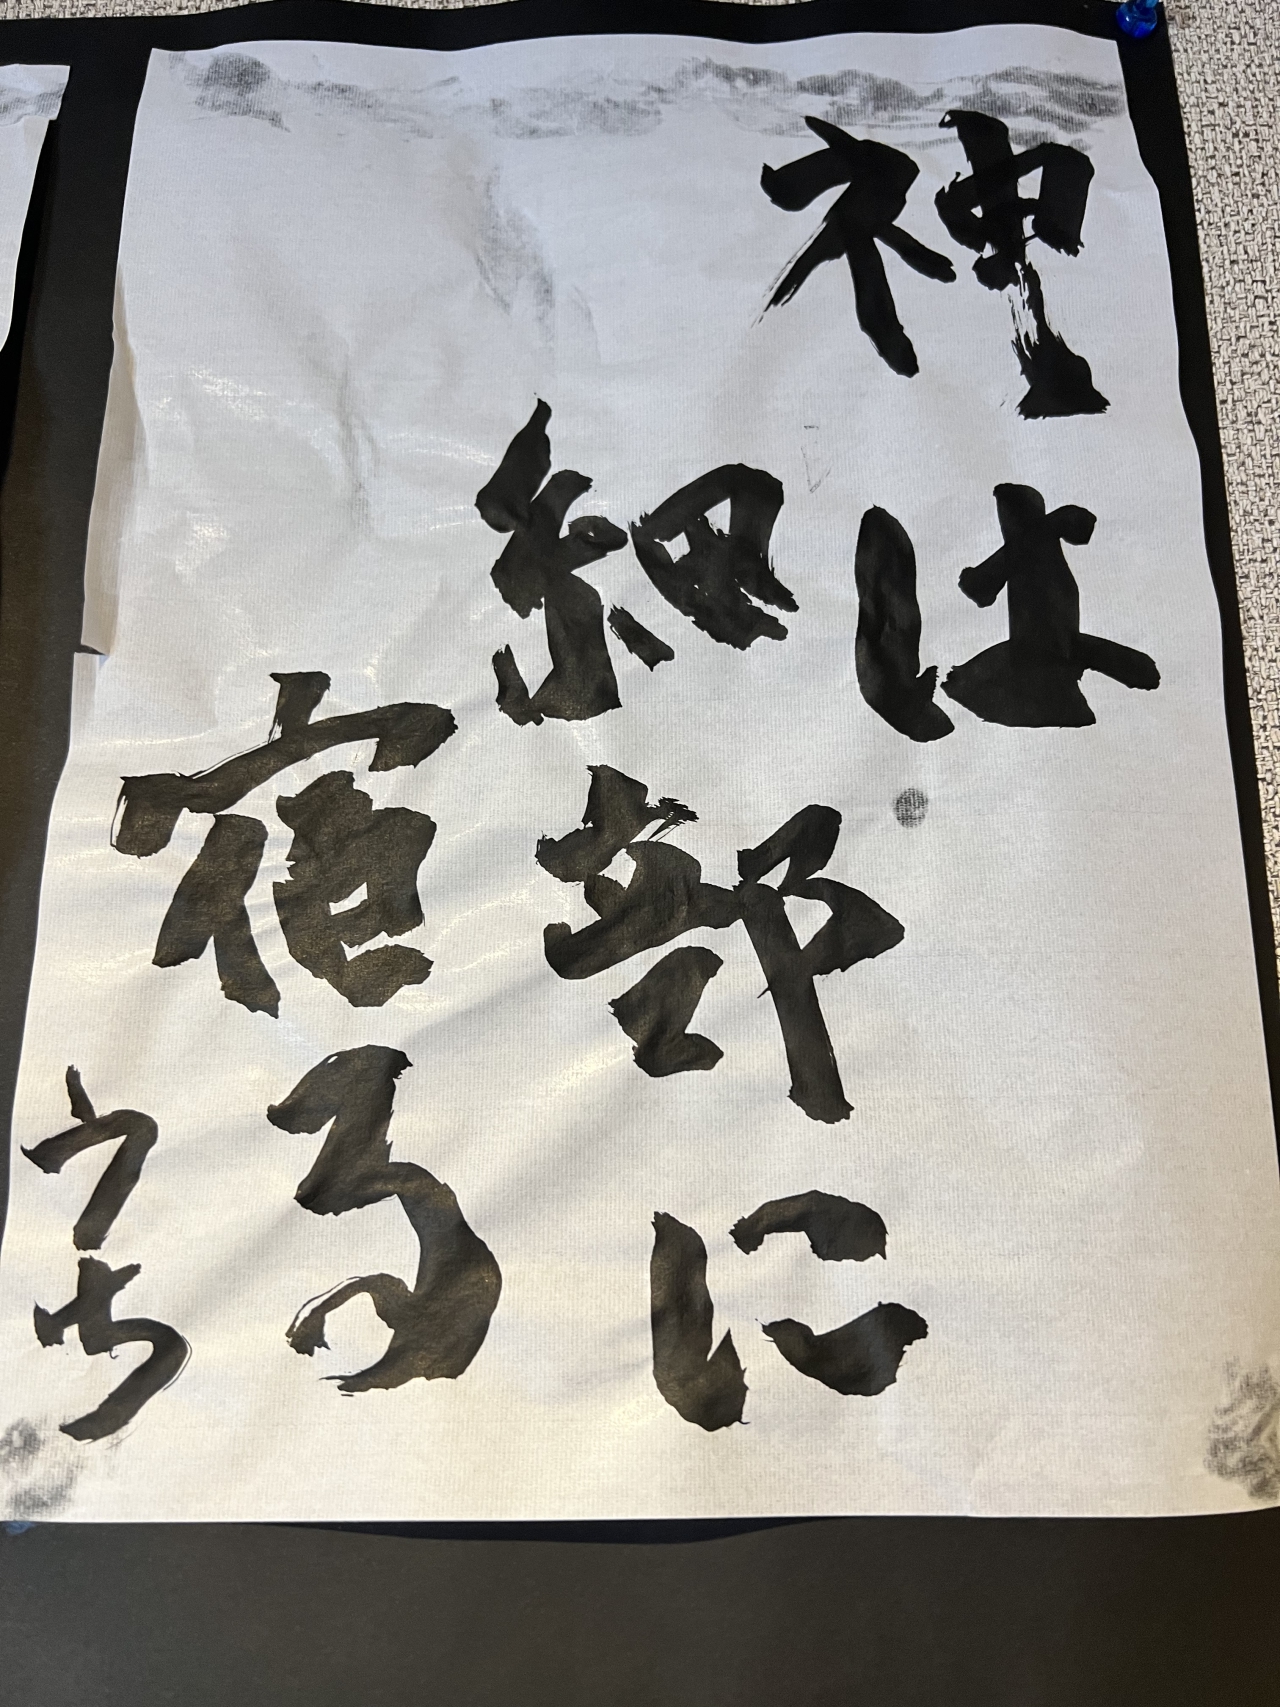 神は
細部に
宿る
うち